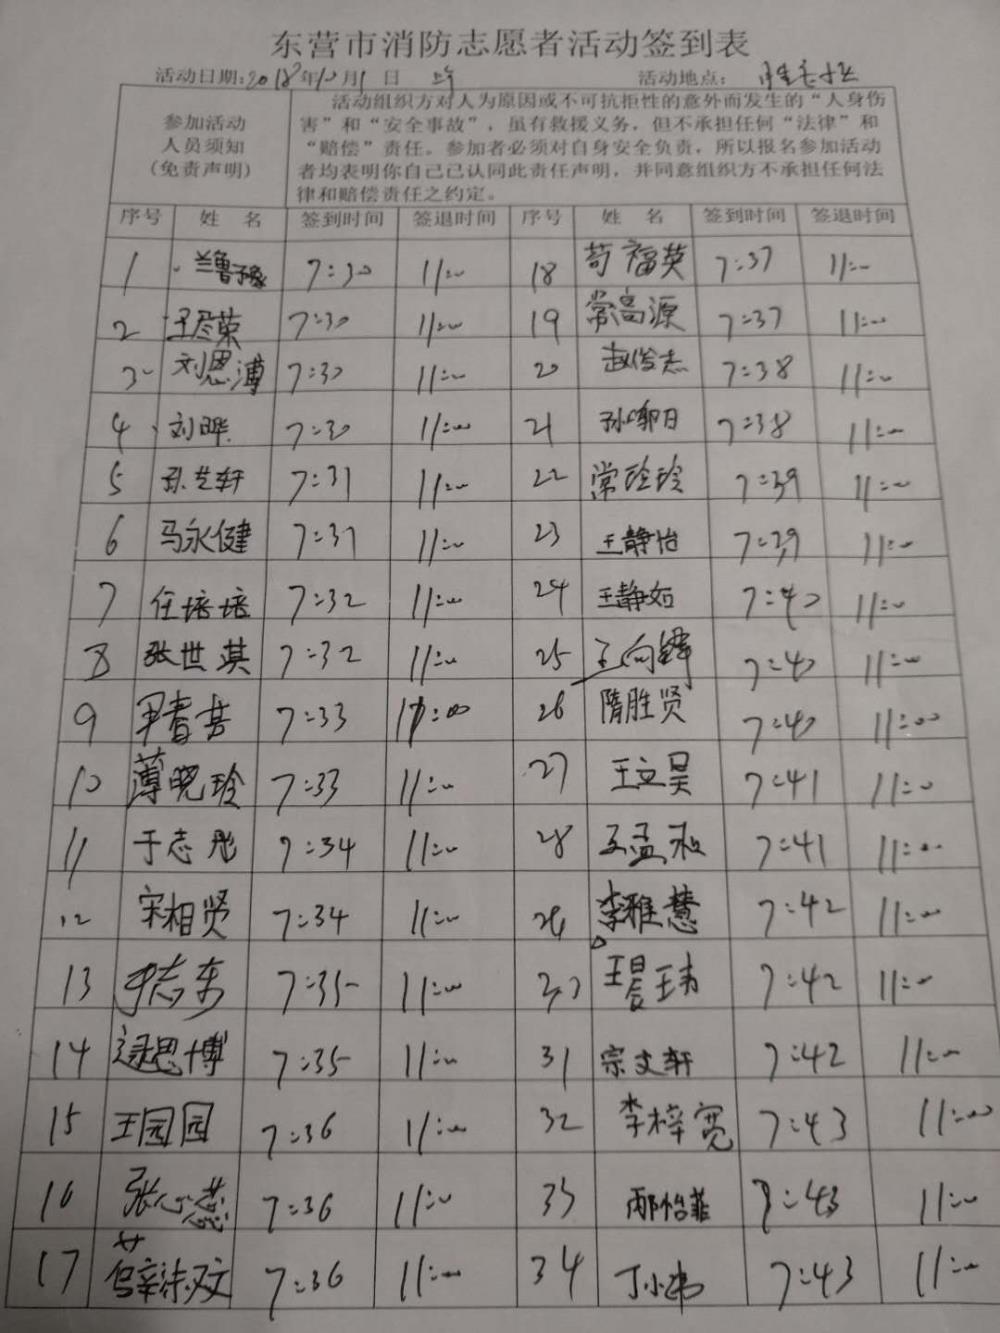 东营市消防志愿者活动签到表
活动日期:2018年10月1日 上午 活动地点:
参加活动
人员须知
(免责声明)
活动组织方对人为原因或不可抗拒性的意外而发生的“人身伤
害”和“安全事故”，虽有救援义务，但不承担任何“法律”和
“赔偿”责任。参加者必须对自身安全负责，所以报名参加活动
者均表明你自己已认同此责任声明，并同意组织方不承担任何法
律和赔偿责任之约定。
序号 姓 名 签到时间 签退时间 序号 姓 名 签到时间 签退时间
1 7:30 11:00 18 苟福英 7:37 11:00
2 7:30 11:00 19 常高源 7:37 11:00
3 刘恩溥 7:30 11:00 20 赵俊志 7:38 11:00
4 刘晔 7:30 11:00 21 7:38 11:00
5 孙艺轩 7:31 11:00 22 常玲玲 7:39 11:00
6 马永健 7:31 11:00 23 王静怡 7:39 11:00
7 任培培 7:32 11:00 24 王静如 7:40 11:00
8 张世淇 7:32 11:00 25 王向锋 7:40 11:00
9 尹春芳 7:33 11:00 26 隋胜贤 7:40 11:00
10 薄晓玲 7:33 11:00 27 王立昊 7:41 11:00
11 于志彤 7:34 11:00 28 7:41 11:00
12 宋相贤 7:34 11:00 29 李雅慧 7:42 11:00
13 尹志东 7:35 11:00 30 王晨玮 7:42 11:00
14 逯思博 7:35 11:00 31 宗文轩 7:42 11:00
15 王园园 7:36 11:00 32 李梓宽 7:43 11:00
16 张心蕊 7:36 11:00 33 邴怡菲 7:43 11:00
17 7:36 11:00 34 丁小伟 7:43 11:00